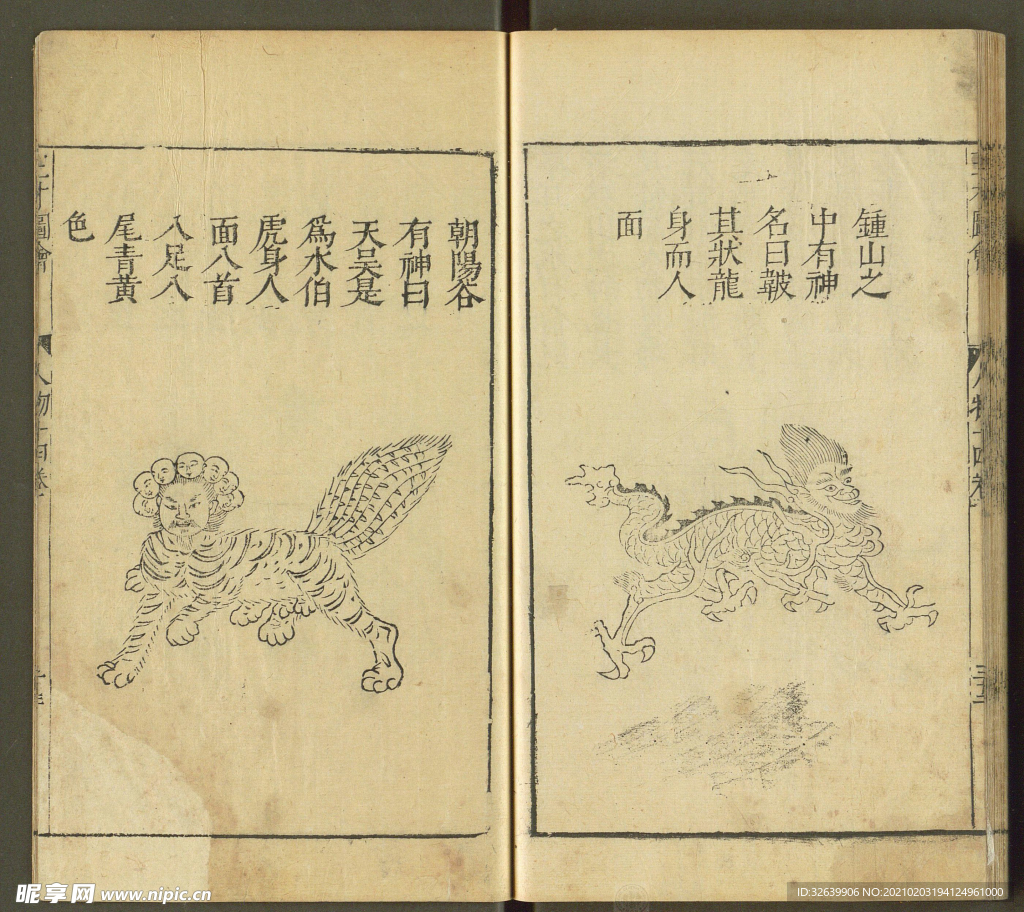 鍾山之
中有神
名曰皷
其狀龍
身而人
面
朝陽谷
有神曰
天吴是
爲水伯
虎身人
面八首
八足八
尾青黄
色
三才圖會
人物十四卷
昵享网 www.nipic.cn
ID:32639906 NO:20210203194124961000